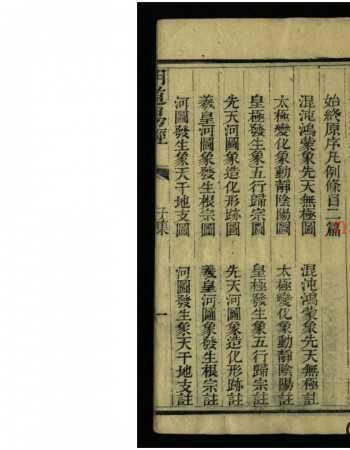 始終原序凡例條目二篇
混沌鴻蒙象先天無極圖 混沌鴻蒙象先天無極註
太極變化象動靜陰陽圖 太極變化象動靜陰陽註
皇極發生象五行歸宗圖 皇極發生象五行歸宗註
先天河圖象造化形跡圖 先天河圖象造化形跡註
羲皇河圖象發生根宗圖 羲皇河圖象發生根宗註
河圖發生象天干地支圖 河圖發生象天干地支註
明道易經 子集 一